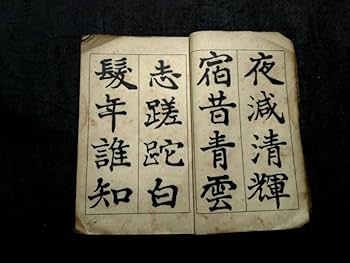 夜減清輝
宿昔青雲
志蹉跎白
髮年誰知